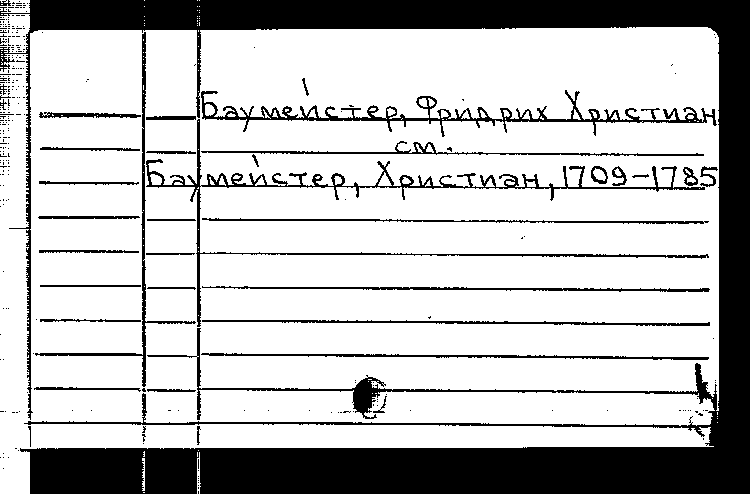 Баумейстер, Фридрих Христиан
см.
Баумейстер, Христиан, 1709-1785